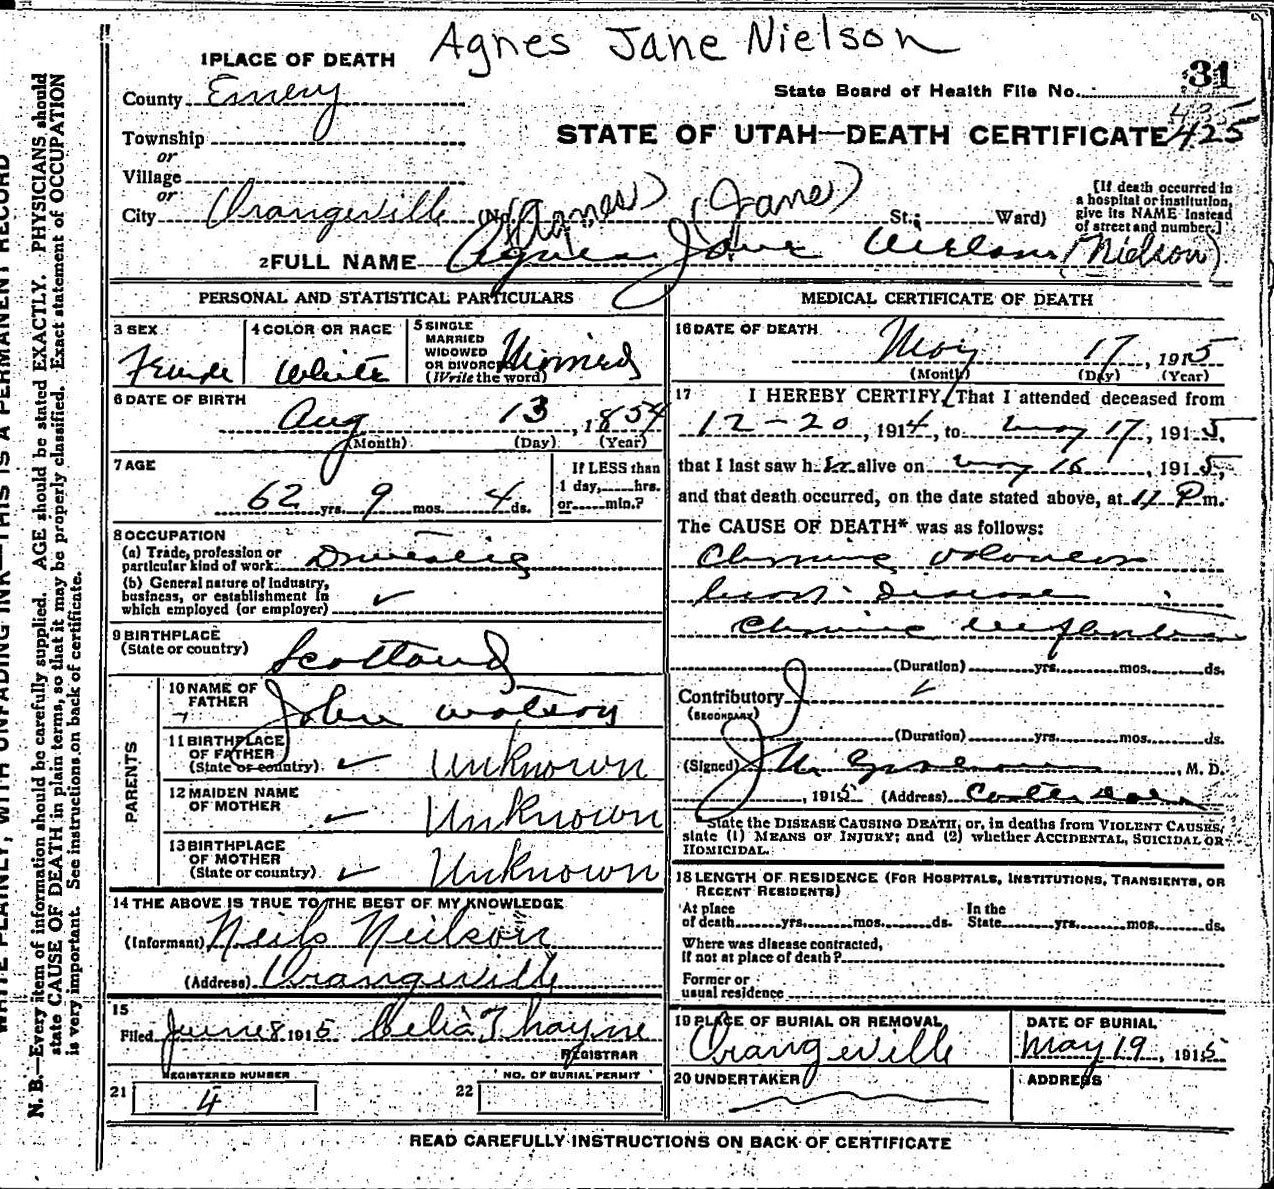 Agnes Jane Nielson
1 PLACE OF DEATH
31
County Emery
State Board of Health File No.
435
Township
STATE OF UTAH—DEATH CERTIFICATE 425
or
Village
or
City Orangeville (No. (Agnes) (Jane) St.; Ward)
[If death occurred in
a hospital or institution,
give its NAME instead
of street and number.]
2 FULL NAME Agnes Jane Nielson (Nielson)
PERSONAL AND STATISTICAL PARTICULARS
3 SEX
Female
4 COLOR OR RACE
White
5 SINGLE
MARRIED
WIDOWED
OR DIVORCED
(Write the word)
Married
6 DATE OF BIRTH
Aug 13, 1854
(Month) (Day) (Year)
7 AGE
62 yrs. 9 mos. 4 ds.
If LESS than
1 day, hrs.
or min.?
8 OCCUPATION
(a) Trade, profession or
particular kind of work
Domestic
(b) General nature of Industry,
business, or establishment in
which employed (or employer) ✓
9 BIRTHPLACE
(State or country)
Scotland
PARENTS
10 NAME OF
FATHER
John Watson
11 BIRTHPLACE
OF FATHER
(State or country) ✓ Unknown
12 MAIDEN NAME
OF MOTHER ✓ Unknown
13 BIRTHPLACE
OF MOTHER
(State or country) ✓ Unknown
14 THE ABOVE IS TRUE TO THE BEST OF MY KNOWLEDGE
(Informant) Neils Neilson
(Address) Orangeville
15
Filed June 8 1915 Celia Thayne
REGISTRAR
21 REGISTERED NUMBER
4
22 NO. OF BURIAL PERMIT
MEDICAL CERTIFICATE OF DEATH
16 DATE OF DEATH
May 17, 1915
(Month) (Day) (Year)
17 I HEREBY CERTIFY, That I attended deceased from
12-20, 1914, to May 17, 1915,
that I last saw her alive on May 16, 1915,
and that death occurred, on the date stated above, at 11 P m.
The CAUSE OF DEATH* was as follows:
Chronic Valvular
heart Disease
Chronic
(Duration) yrs. mos. ds.
Contributory ✓
(SECONDARY)
(Duration) yrs. mos. ds.
(Signed) , M. D.
, 1915 (Address) Castle Dale
State the DISEASE CAUSING DEATH, or, in deaths from VIOLENT CAUSES,
state (1) MEANS OF INJURY; and (2) whether ACCIDENTAL, SUICIDAL OR
HOMICIDAL.
18 LENGTH OF RESIDENCE (FOR HOSPITALS, INSTITUTIONS, TRANSIENTS, OR
RECENT RESIDENTS)
At place
of death yrs. mos. ds.
In the
State yrs. mos. ds.
Where was disease contracted,
if not at place of death?
Former or
usual residence
19 PLACE OF BURIAL OR REMOVAL
Orangeville
DATE OF BURIAL
May 19, 1915
20 UNDERTAKER
ADDRESS
READ CAREFULLY INSTRUCTIONS ON BACK OF CERTIFICATE
WRITE PLAINLY, WITH UNFADING INK—THIS IS A PERMANENT RECORD
N. B.—Every item of information should be carefully supplied. AGE should be stated EXACTLY. PHYSICIANS should
state CAUSE OF DEATH in plain terms, so that it may be properly classified. Exact statement of OCCUPATION
is very important. See instructions on back of certificate.